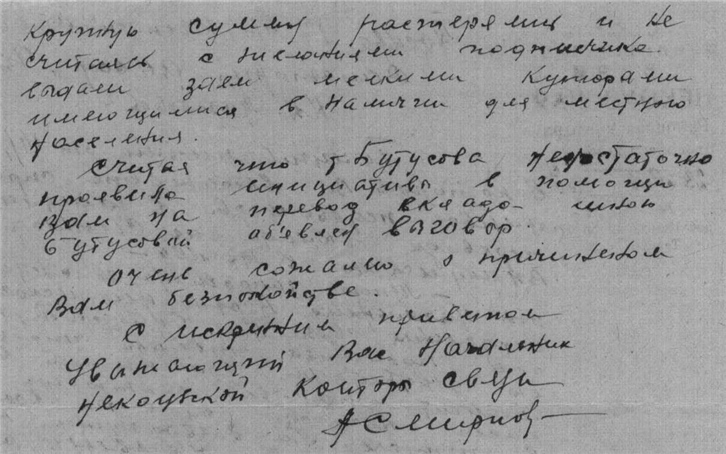 крупную сумму растеряли и не
считаясь с желаниями подписчика
выдали заем мелкими купюрами
имеющимися в наличии для местного
населения.
Считая что т Бутусова недостаточно
проявила инициативы в помощи
Вам на перевод вклада мною
Бутусовой объявлен выговор.
Очень сожалею о причиненом
Вам безпокойстве.
С искренним приветом
Уважающий Вас Начальник
Некоузской конторы связи
АСмирнов